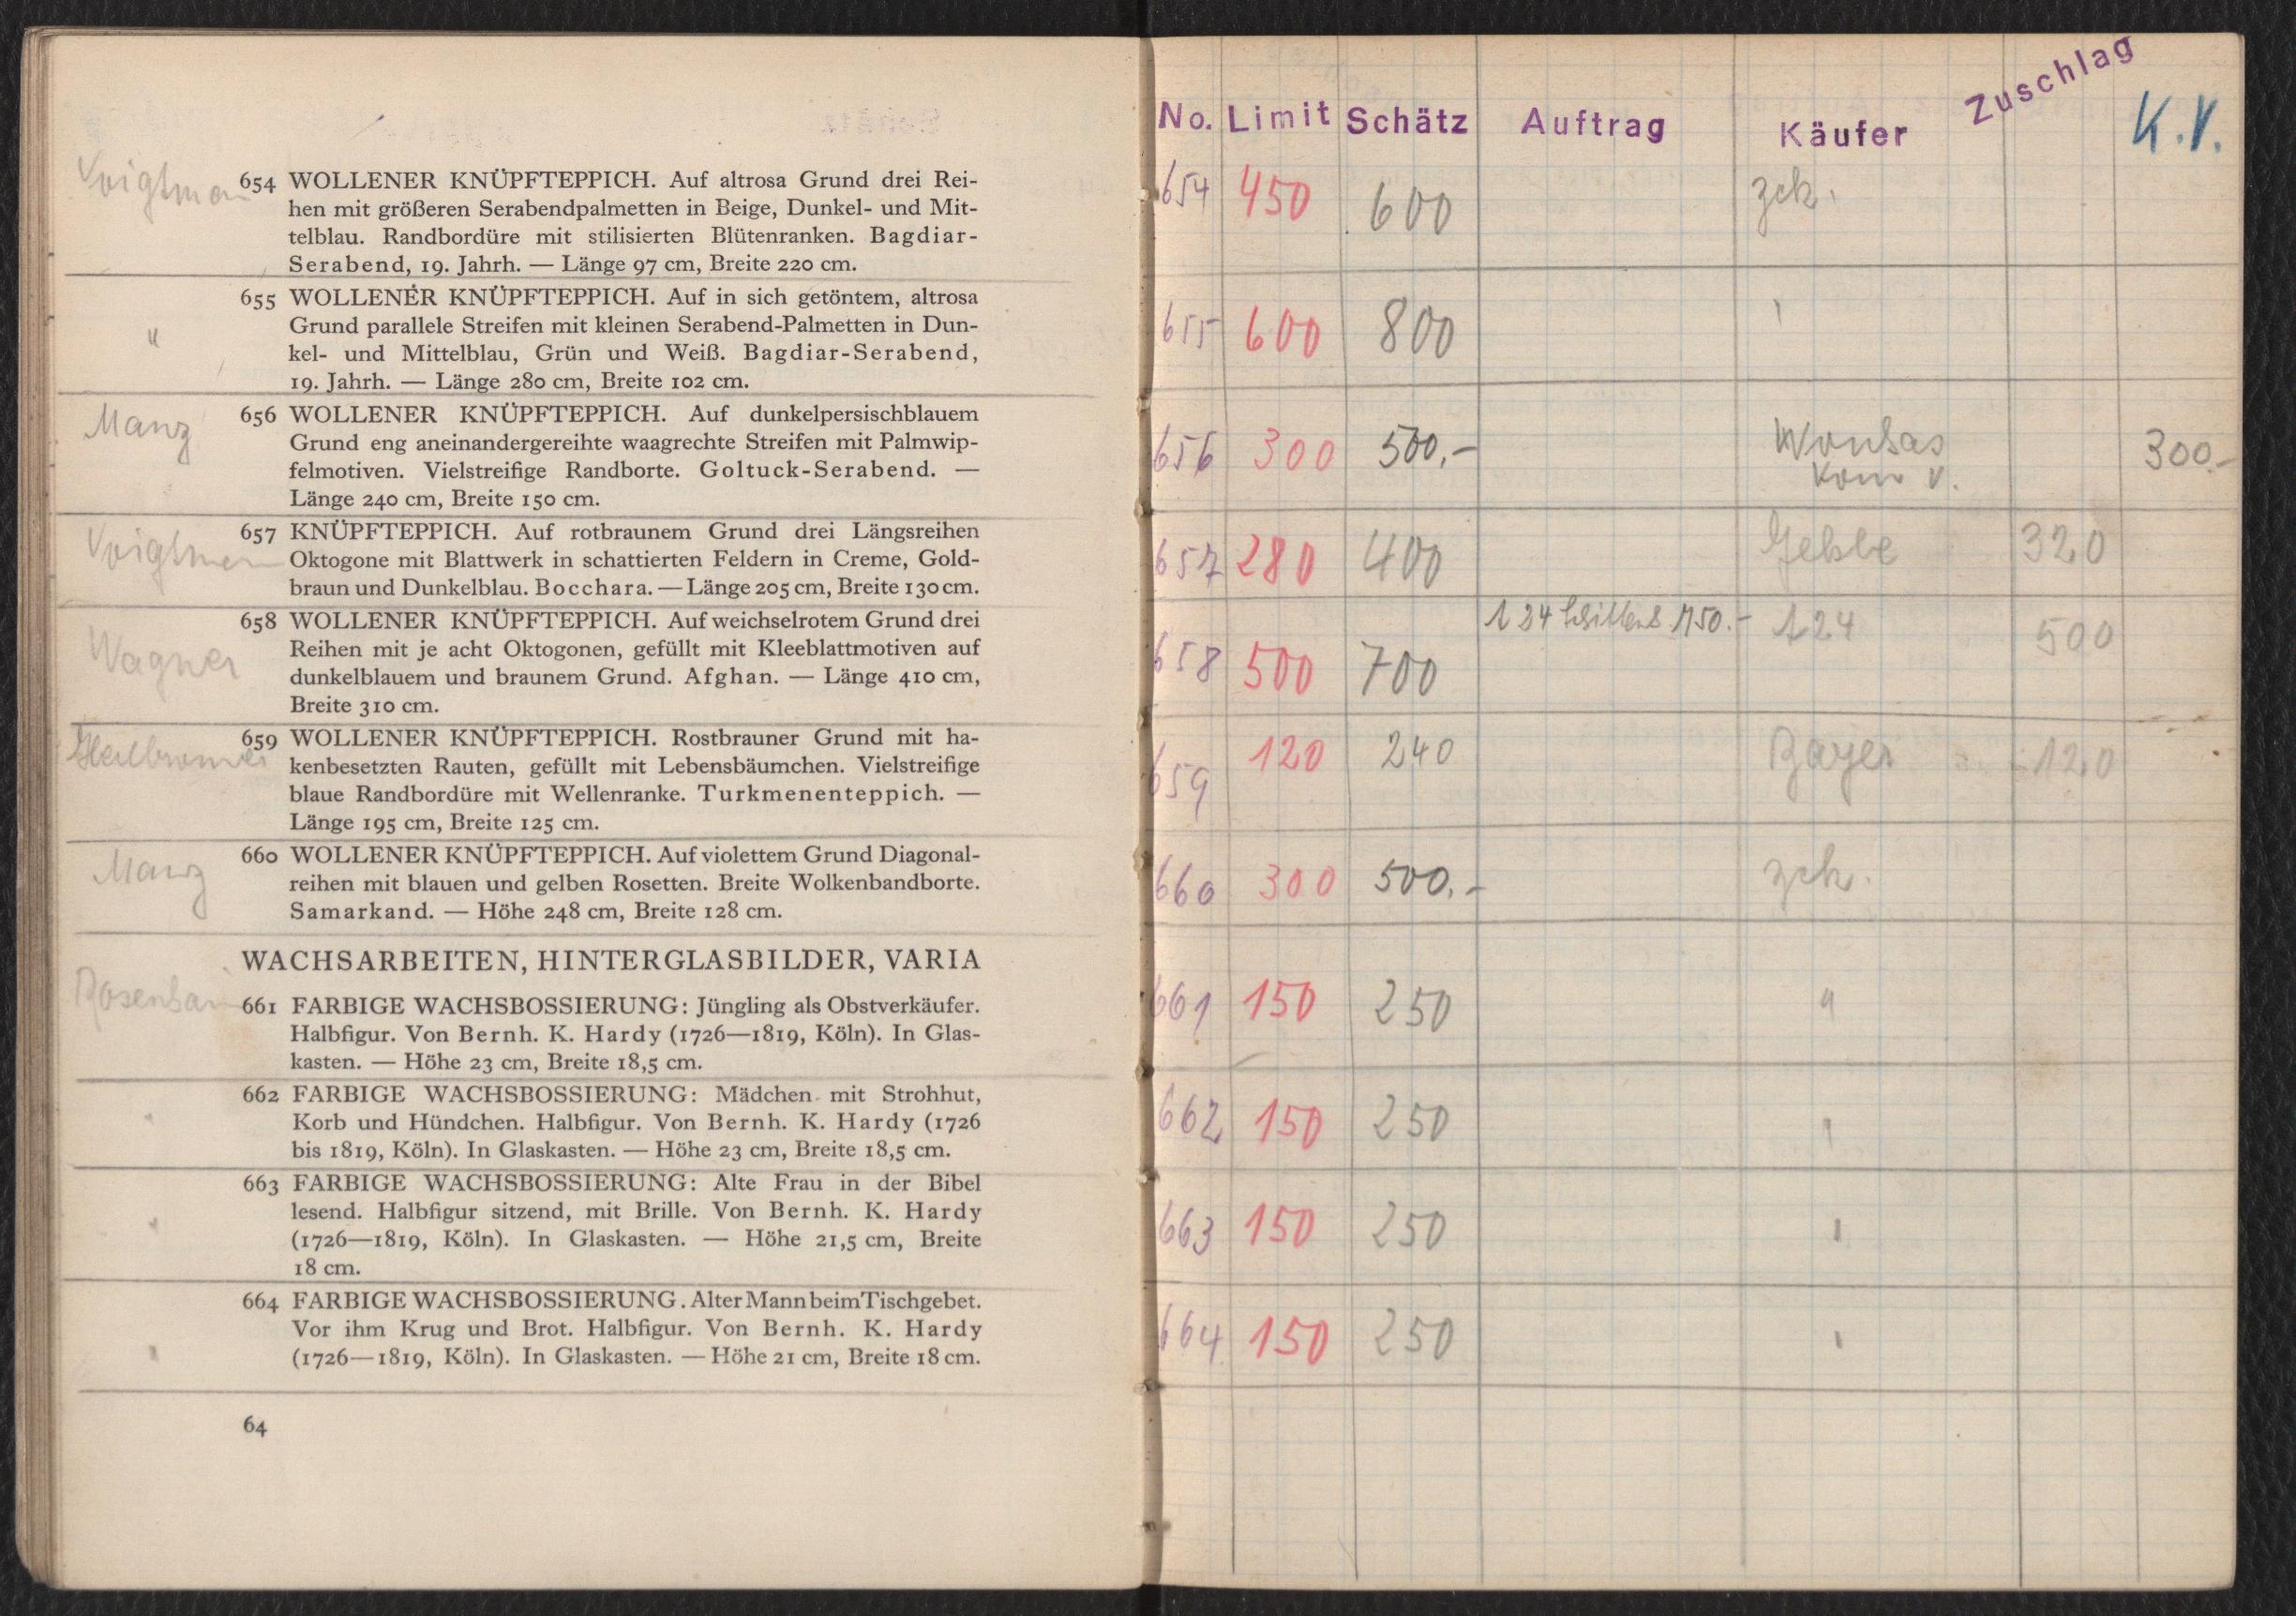 Manz
Wagner
Manz
654 WOLLENER KNÜPFTEPPICH. Auf altrosa Grund drei Rei-
hen mit größeren Serabendpalmetten in Beige, Dunkel- und Mit-
telblau. Randbordüre mit stilisierten Blütenranken. Bagdiar-
Serabend, 19. Jahrh. — Länge 97 cm, Breite 220 cm.
655 WOLLENER KNÜPFTEPPICH. Auf in sich getöntem, altrosa
Grund parallele Streifen mit kleinen Serabend-Palmetten in Dun-
kel- und Mittelblau, Grün und Weiß. Bagdiar-Serabend,
19. Jahrh. — Länge 280 cm, Breite 102 cm.
656 WOLLENER KNÜPFTEPPICH. Auf dunkelpersischblauem
Grund eng aneinandergereihte waagrechte Streifen mit Palmwip-
felmotiven. Vielstreifige Randborte. Goltuck-Serabend. —
Länge 240 cm, Breite 150 cm.
657 KNÜPFTEPPICH. Auf rotbraunem Grund drei Längsreihen
Oktogone mit Blattwerk in schattierten Feldern in Creme, Gold-
braun und Dunkelblau. Bocchara. — Länge 205 cm, Breite 130 cm.
658 WOLLENER KNÜPFTEPPICH. Auf weichselrotem Grund drei
Reihen mit je acht Oktogonen, gefüllt mit Kleeblattmotiven auf
dunkelblauem und braunem Grund. Afghan. — Länge 410 cm,
Breite 310 cm.
659 WOLLENER KNÜPFTEPPICH. Rostbrauner Grund mit ha-
kenbesetzten Rauten, gefüllt mit Lebensbäumchen. Vielstreifige
blaue Randbordüre mit Wellenranke. Turkmenenteppich. —
Länge 195 cm, Breite 125 cm.
660 WOLLENER KNÜPFTEPPICH. Auf violettem Grund Diagonal-
reihen mit blauen und gelben Rosetten. Breite Wolkenbandborte.
Samarkand. — Höhe 248 cm, Breite 128 cm.
WACHSARBEITEN, HINTERGLASBILDER, VARIA
661 FARBIGE WACHSBOSSIERUNG: Jüngling als Obstverkäufer.
Halbfigur. Von Bernh. K. Hardy (1726—1819, Köln). In Glas-
kasten. — Höhe 23 cm, Breite 18,5 cm.
662 FARBIGE WACHSBOSSIERUNG: Mädchen mit Strohhut,
Korb und Hündchen. Halbfigur. Von Bernh. K. Hardy (1726
bis 1819, Köln). In Glaskasten. — Höhe 23 cm, Breite 18,5 cm.
663 FARBIGE WACHSBOSSIERUNG: Alte Frau in der Bibel
lesend. Halbfigur sitzend, mit Brille. Von Bernh. K. Hardy
(1726—1819, Köln). In Glaskasten. — Höhe 21,5 cm, Breite
18 cm.
664 FARBIGE WACHSBOSSIERUNG. Alter Mann beim Tischgebet.
Vor ihm Krug und Brot. Halbfigur. Von Bernh. K. Hardy
(1726—1819, Köln). In Glaskasten. — Höhe 21 cm, Breite 18 cm.
64
No. Limit Schätz Auftrag Käufer Zuschlag K.V.
654 450 600 zck.
655 600 800
656 300 500,- 300.-
Kom V.
657 280 400 320
658 500 700 124 500
659 120 240 Bayer 120
660 300 500,- zck.
661 150 250 "
662 150 250
663 150 250
664 150 250